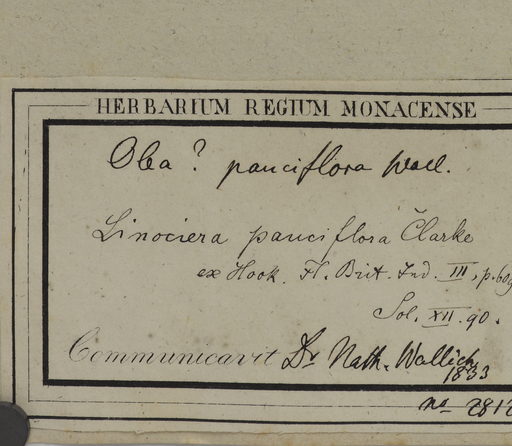 HERBARIUM REGIUM MONACENSE
Olea? pauciflora Wall.
Linociera pauciflora Clarke
ex Hook. Fl. Brit. Ind. III, p. 609
Sol. XII. 90.
Communicavit Dr Nath. Wallich
1833
no 2812